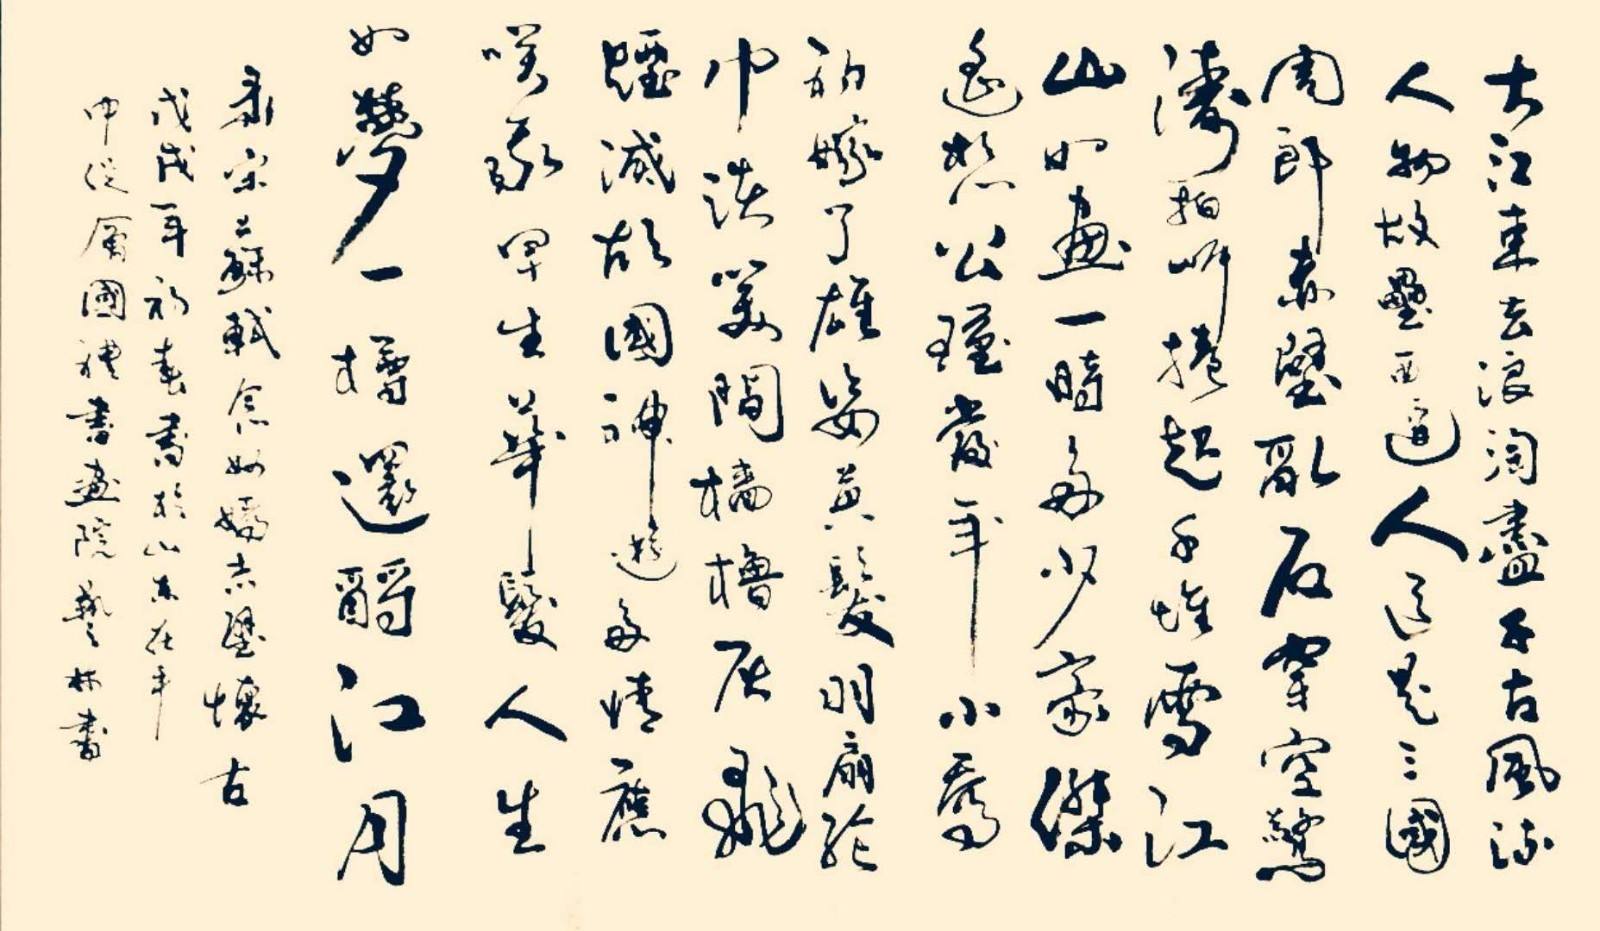 大江東去浪淘盡千古風流
人物故壘西邊人道是三國
周郎赤壁亂石穿空驚
濤拍岸捲起千堆雪江
山如畫一時多少豪傑
遙想公瑾當年小喬
初嫁了雄姿英髮羽扇綸
巾談笑間檣櫓灰飛
煙滅故國神遊多情應
笑我早生華髮人生
如夢一樽還酹江月
录宋蘇軾念奴嬌赤壁懷古
戊戌年初春書於山東在平
中國禮書畫院藝林書